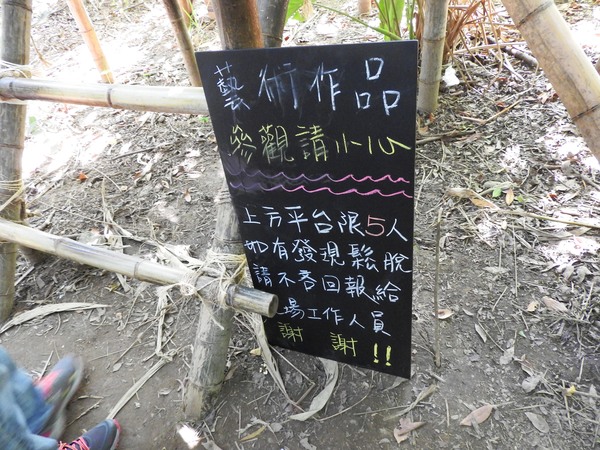 藝術作品
參觀請小心
上方平台限5人
如有發現鬆脫
請不吝回報給
場工作人員
謝 謝 !!